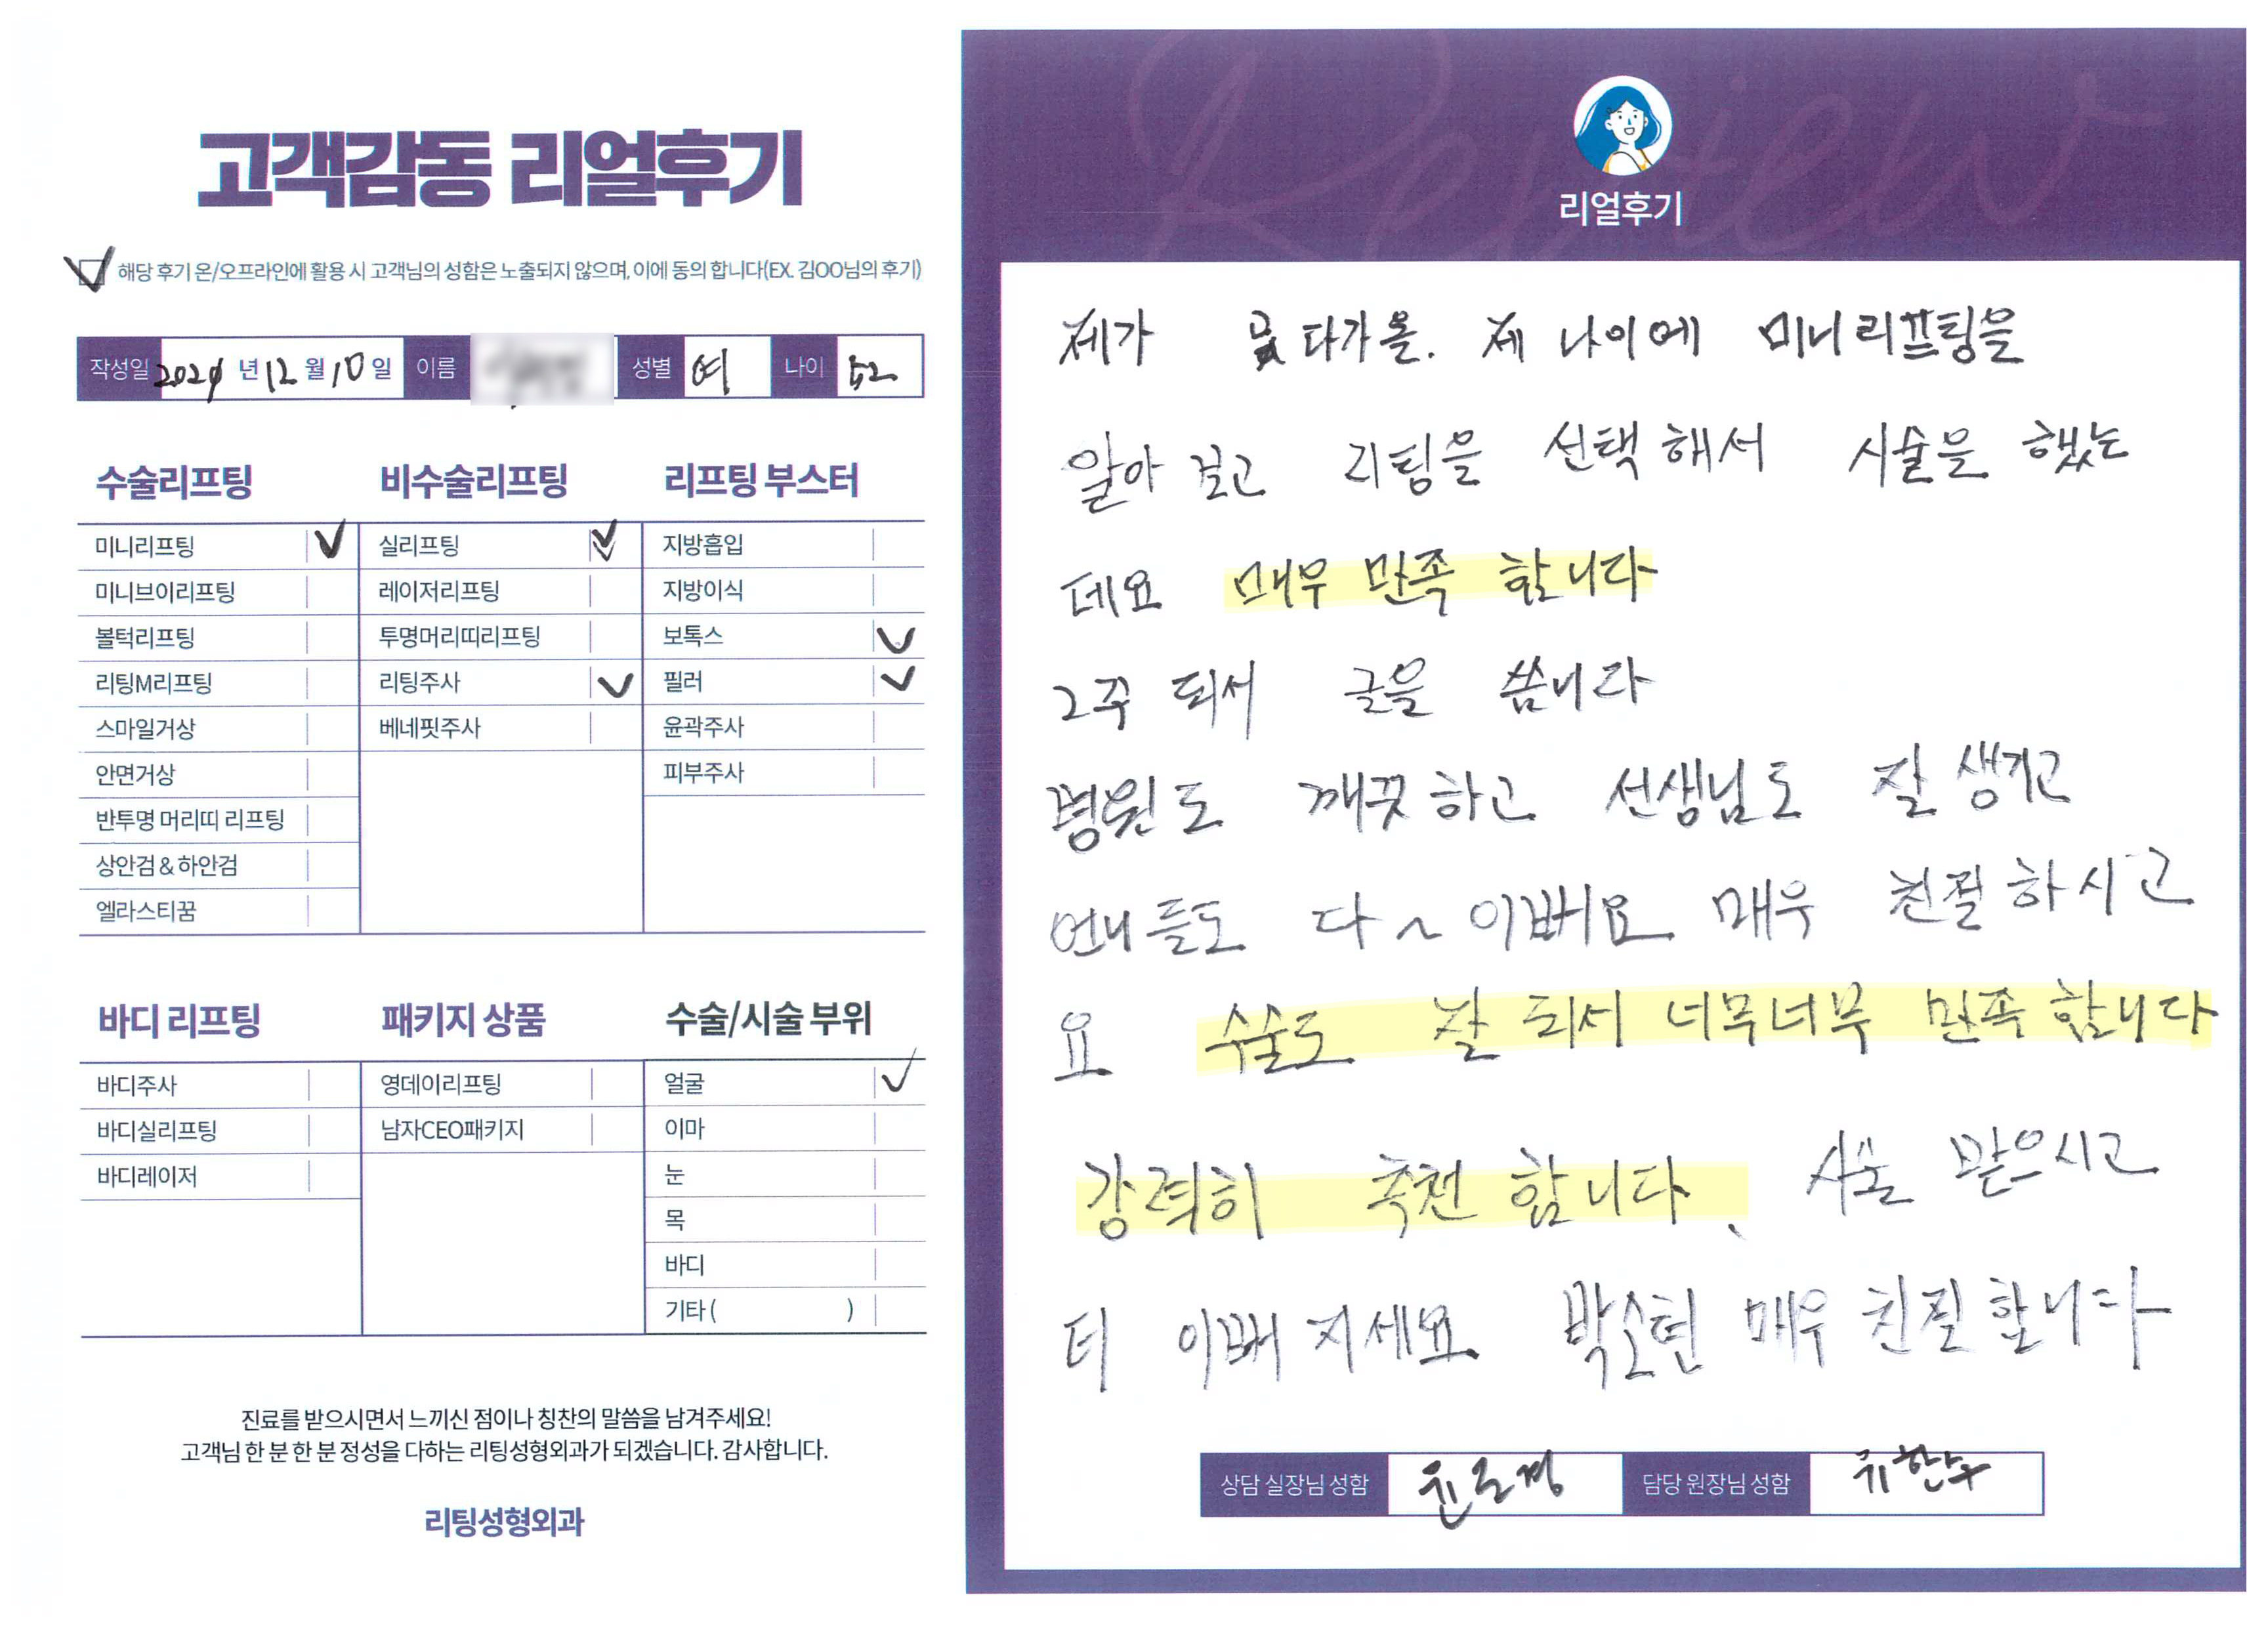 고객감동 리얼후기
해당 후기 온/오프라인에 활용 시 고객님의 성함은 노출되지 않으며, 이에 동의 합니다(EX. 김OO님의 후기)
작성일 2024년 12월 10일 이름 성별 여 나이 52
수술리프팅
미니리프팅
미니브이리프팅
볼턱리프팅
리팅M리프팅
스마일거상
안면거상
반투명 머리띠 리프팅
상안검 & 하안검
엘라스티꿈
비수술리프팅
실리프팅
레이저리프팅
투명머리띠리프팅
리팅주사
베네핏주사
리프팅 부스터
지방흡입
지방이식
보톡스
필러
윤곽주사
피부주사
바디 리프팅
바디주사
바디실리프팅
바디레이저
패키지 상품
영데이리프팅
남자CEO패키지
수술/시술 부위
얼굴
이마
눈
목
바디
기타 ( )
진료를 받으시면서 느끼신 점이나 칭찬의 말씀을 남겨주세요!
고객님 한 분 한 분 정성을 다하는 리팅성형외과가 되겠습니다. 감사합니다.
리팅성형외과
Review
리얼후기
제가 다가올. 제 나이에 미니리프팅을
알아 보고 리팅을 선택해서 시술을 했는
데요 매우 만족 합니다
2주 되서 글을 씁니다
병원도 깨끗하고 선생님도 잘 생기고
언니들도 다~ 이뻐요 매우 친절하시고
요 수술도 잘 되서 너무너무 만족합니다
강력히 추천 합니다. 시술 받으시고
더 이뻐 지세요 박소현 매우 친절합니다
상담 실장님 성함 담당 원장님 성함